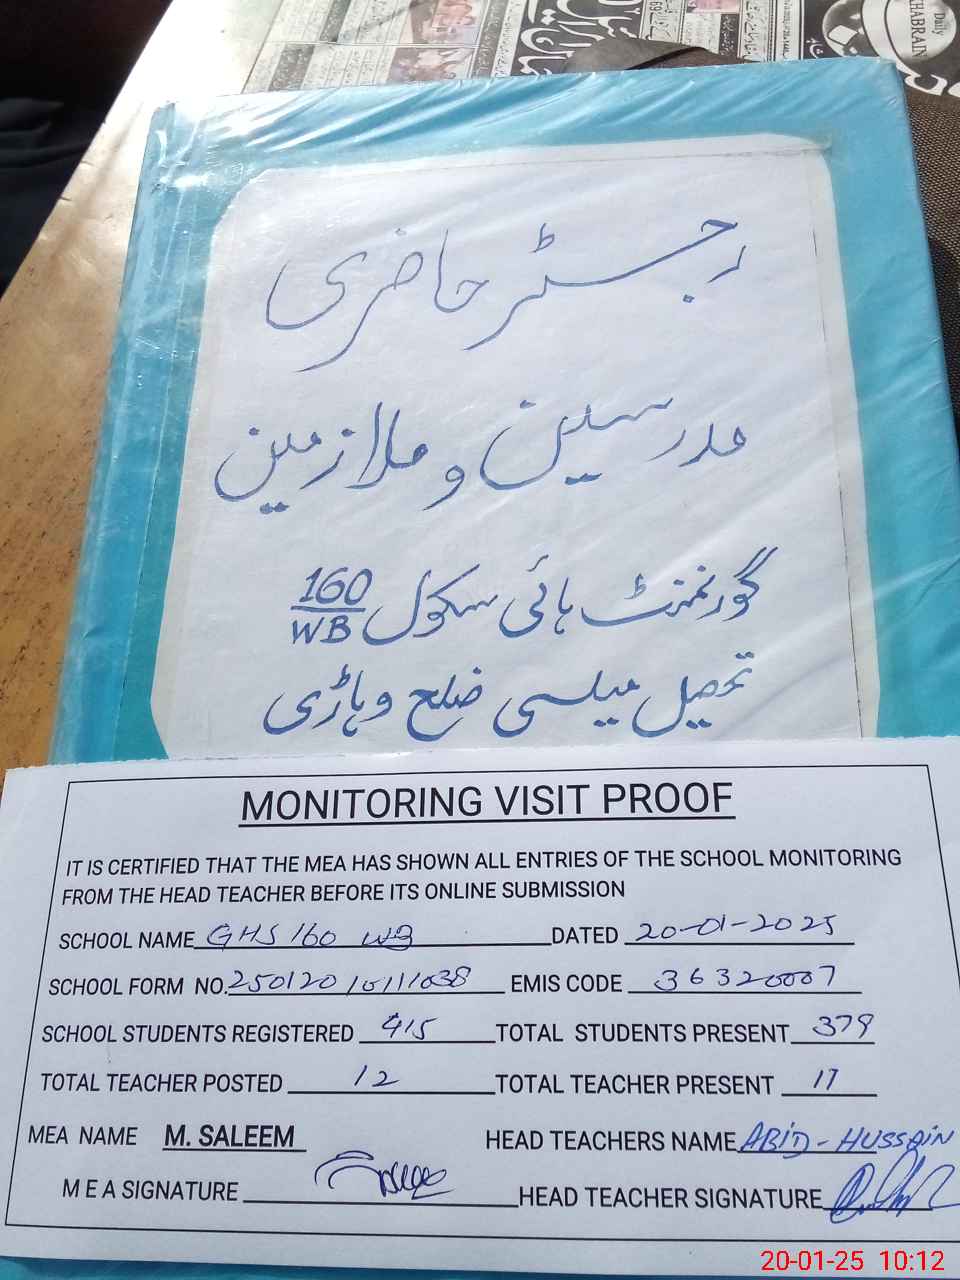 Daily
KHABRAIN
رجسٹر حاضری
مدرسین و ملازمین
گورنمنٹ ہائی سکول 160/WB
تحصیل میلسی ضلع وہاڑی
MONITORING VISIT PROOF
IT IS CERTIFIED THAT THE MEA HAS SHOWN ALL ENTRIES OF THE SCHOOL MONITORING
FROM THE HEAD TEACHER BEFORE ITS ONLINE SUBMISSION
SCHOOL NAME GHS 160 WB DATED 20-01-2025
SCHOOL FORM NO. 25012010111038 EMIS CODE 36320007
SCHOOL STUDENTS REGISTERED 415 TOTAL STUDENTS PRESENT 379
TOTAL TEACHER POSTED 12 TOTAL TEACHER PRESENT 11
MEA NAME M. SALEEM HEAD TEACHERS NAME ABID-HUSSAIN
M E A SIGNATURE HEAD TEACHER SIGNATURE
20-01-25 10:12